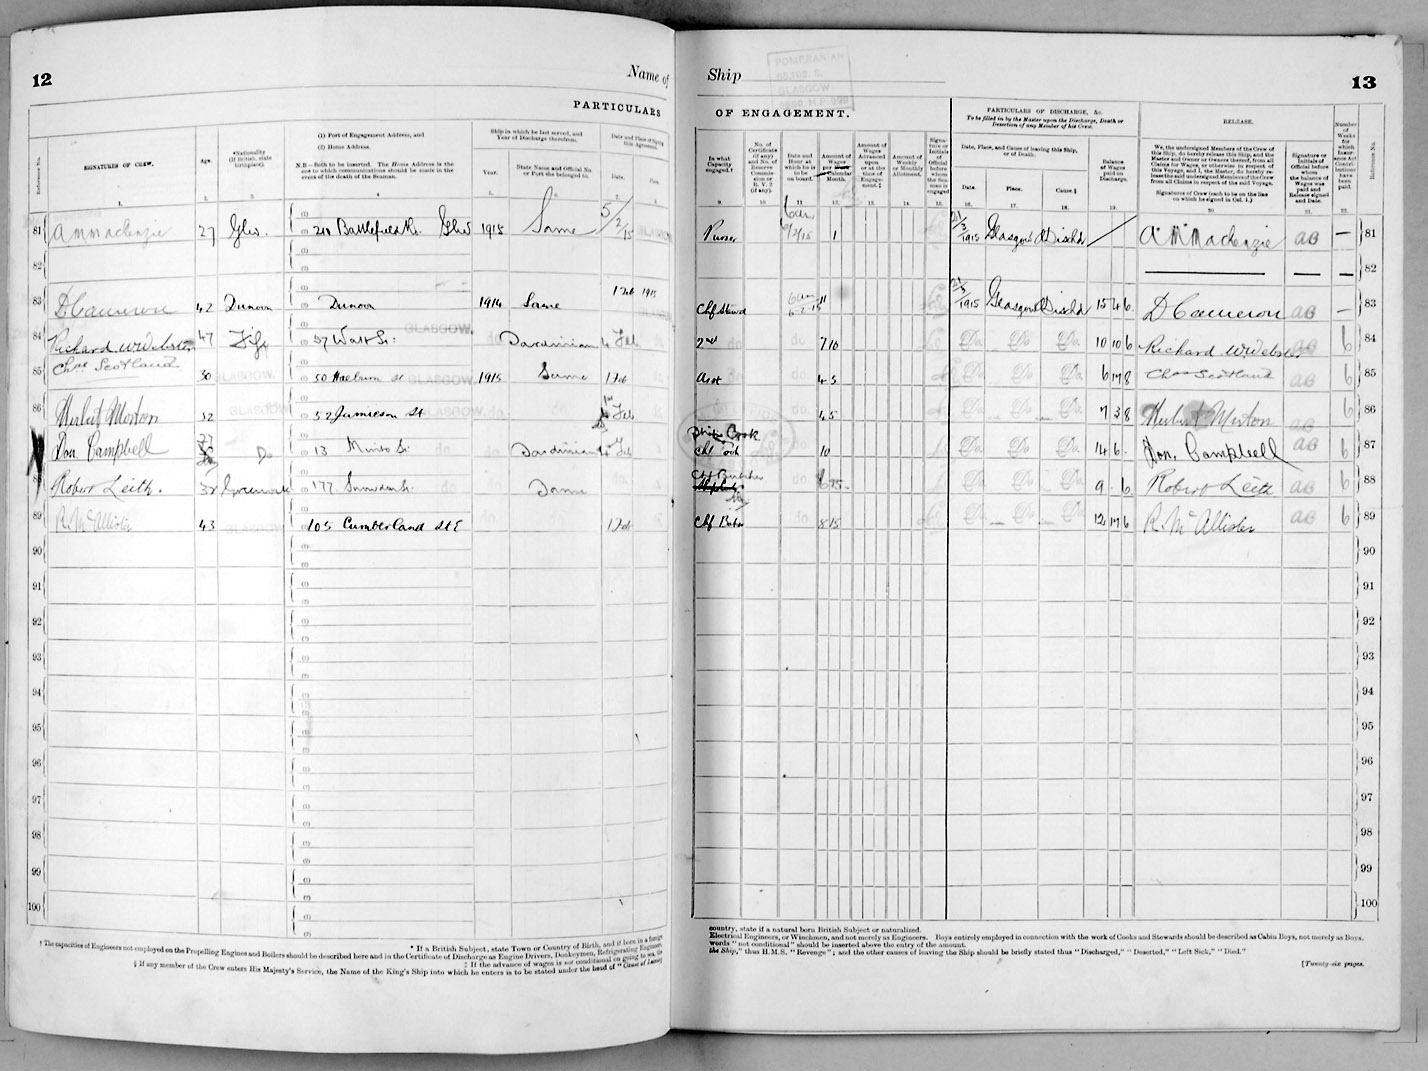 12
Name of
Ship
POMERANIAN
GLASGOW
13
PARTICULARS
OF ENGAGEMENT.
Reference No.
SIGNATURES OF CREW.
Age.
*Nationality (If British, state birthplace).
(1) Port of Engagement Address, and
(2) Home Address.
N.B.—Both to be inserted. The Home Address is the one to which communications should be made in the event of the death of the Seaman.
Ship in which he last served, and Year of Discharge therefrom.
Year.
State Name and Official No. or Port she belonged to.
Date and Place of Signing this Agreement.
Date.
Place.
In what Capacity engaged.†
No. of Certificate (if any) and No. of Reserve Commission or R. V. 2 (if any).
Date and Hour at which he is to be on board.
Amount of Wages per Calendar Month.
Amount of Wages Advanced upon or at the time of Engagement.‡
Amount of Weekly or Monthly Allotment.
Signature or Initials of Official before whom the Seaman is engaged
PARTICULARS OF DISCHARGE, &c.
To be filled in by the Master upon the Discharge, Death or Desertion of any Member of his Crew.
Date, Place, and Cause of leaving this Ship, or of Death.
Date.
Place.
Cause.§
Balance of Wages paid on Discharge.
RELEASE.
We, the undersigned Members of the Crew of this Ship, do hereby release this Ship, and the Master and Owner or Owners thereof, from all Claims for Wages, or otherwise in respect of this Voyage; and I, the Master, do hereby release the undersigned Members of the Crew from all Claims in respect of the said Voyage.
Signatures of Crew (each to be on the line on which he signed in Col. 1.)
Signature or Initials of Official before whom the balance of Wages was paid and Release signed and Date.
Number of Weeks for which Insurance Act Contributions have been paid.
Reference No.
81 A M Mackenzie 27 Glw. 210 Battlefield Rd. Glw 1915 Same 5/2/15 Purser 6am 6/2/15 1 1915 Glasgow Dischd A M Mackenzie AB — 81
82 82
83 D Cameron 42 Dunoon Dunoon 1914 Same 1 Feb 1915 Chf Steward 6am 6-2-15 11 1915 Glasgow Dischd 15 4 6 D Cameron AB — 83
84 Richard W Webster 47 Fife 57 Watt St. Sardinian 4 Feb 2nd 7 10 Do. Do. Do. 10 10 6 Richard W Webster AB 6 84
85 Chas Scotland 30 GLASGOW. 1915 Same 1 Feb Asst 4 5 Do. Do. Do. 6 17 8 Chas Scotland AB 6 85
86 Herbert Morton 32 GLASGOW 52 Jamieson St 1st Feb 4 5 Do. Do. Do. 7 3 8 Herbert Morton AB 6 86
Don. Campbell Do 13 Minto St. Sardinian Feb Ships Cook Chf Cook 10 Do. Do. Do. 14 6 Don. Campbell AB 6 87
Robert Leith. Greenock 177 Same Chf Butcher Do. Do. Do. 9 6 Robert Leith AB 6 88
89 R. McAllister 43 105 Cumberland St E 1 Feb Chf Baker 8 15 Do. Do. Do. 12 17 6 R. McAllister AB 6 89
90 90
91 91
92 92
93 93
94 94
95 95
96 96
97 97
98 98
99 99
100 100
† The capacities of Engineers not employed on the Propelling Engines and Boilers should be described here and in the Certificate of Discharge as Engine Drivers, Donkeymen, Refrigerating Engineers,
* If a British Subject, state Town or Country of Birth, and if born in a foreign
‡ If the advance of wages is not conditional on going to sea, the
§ If any member of the Crew enters His Majesty's Service, the Name of the King's Ship into which he enters is to be stated under the head of "Cause of Leaving
country, state if a natural born British Subject or naturalized.
Electrical Engineers, or Winchmen, and not merely as Engineers. Boys entirely employed in connection with the work of Cooks and Stewards should be described as Cabin Boys, not merely as Boys.
words "not conditional" should be inserted above the entry of the amount.
the Ship," thus H.M.S. "Revenge"; and the other causes of leaving the Ship should be briefly stated thus "Discharged," "Deserted," "Left Sick," "Died."
[Twenty-six pages.